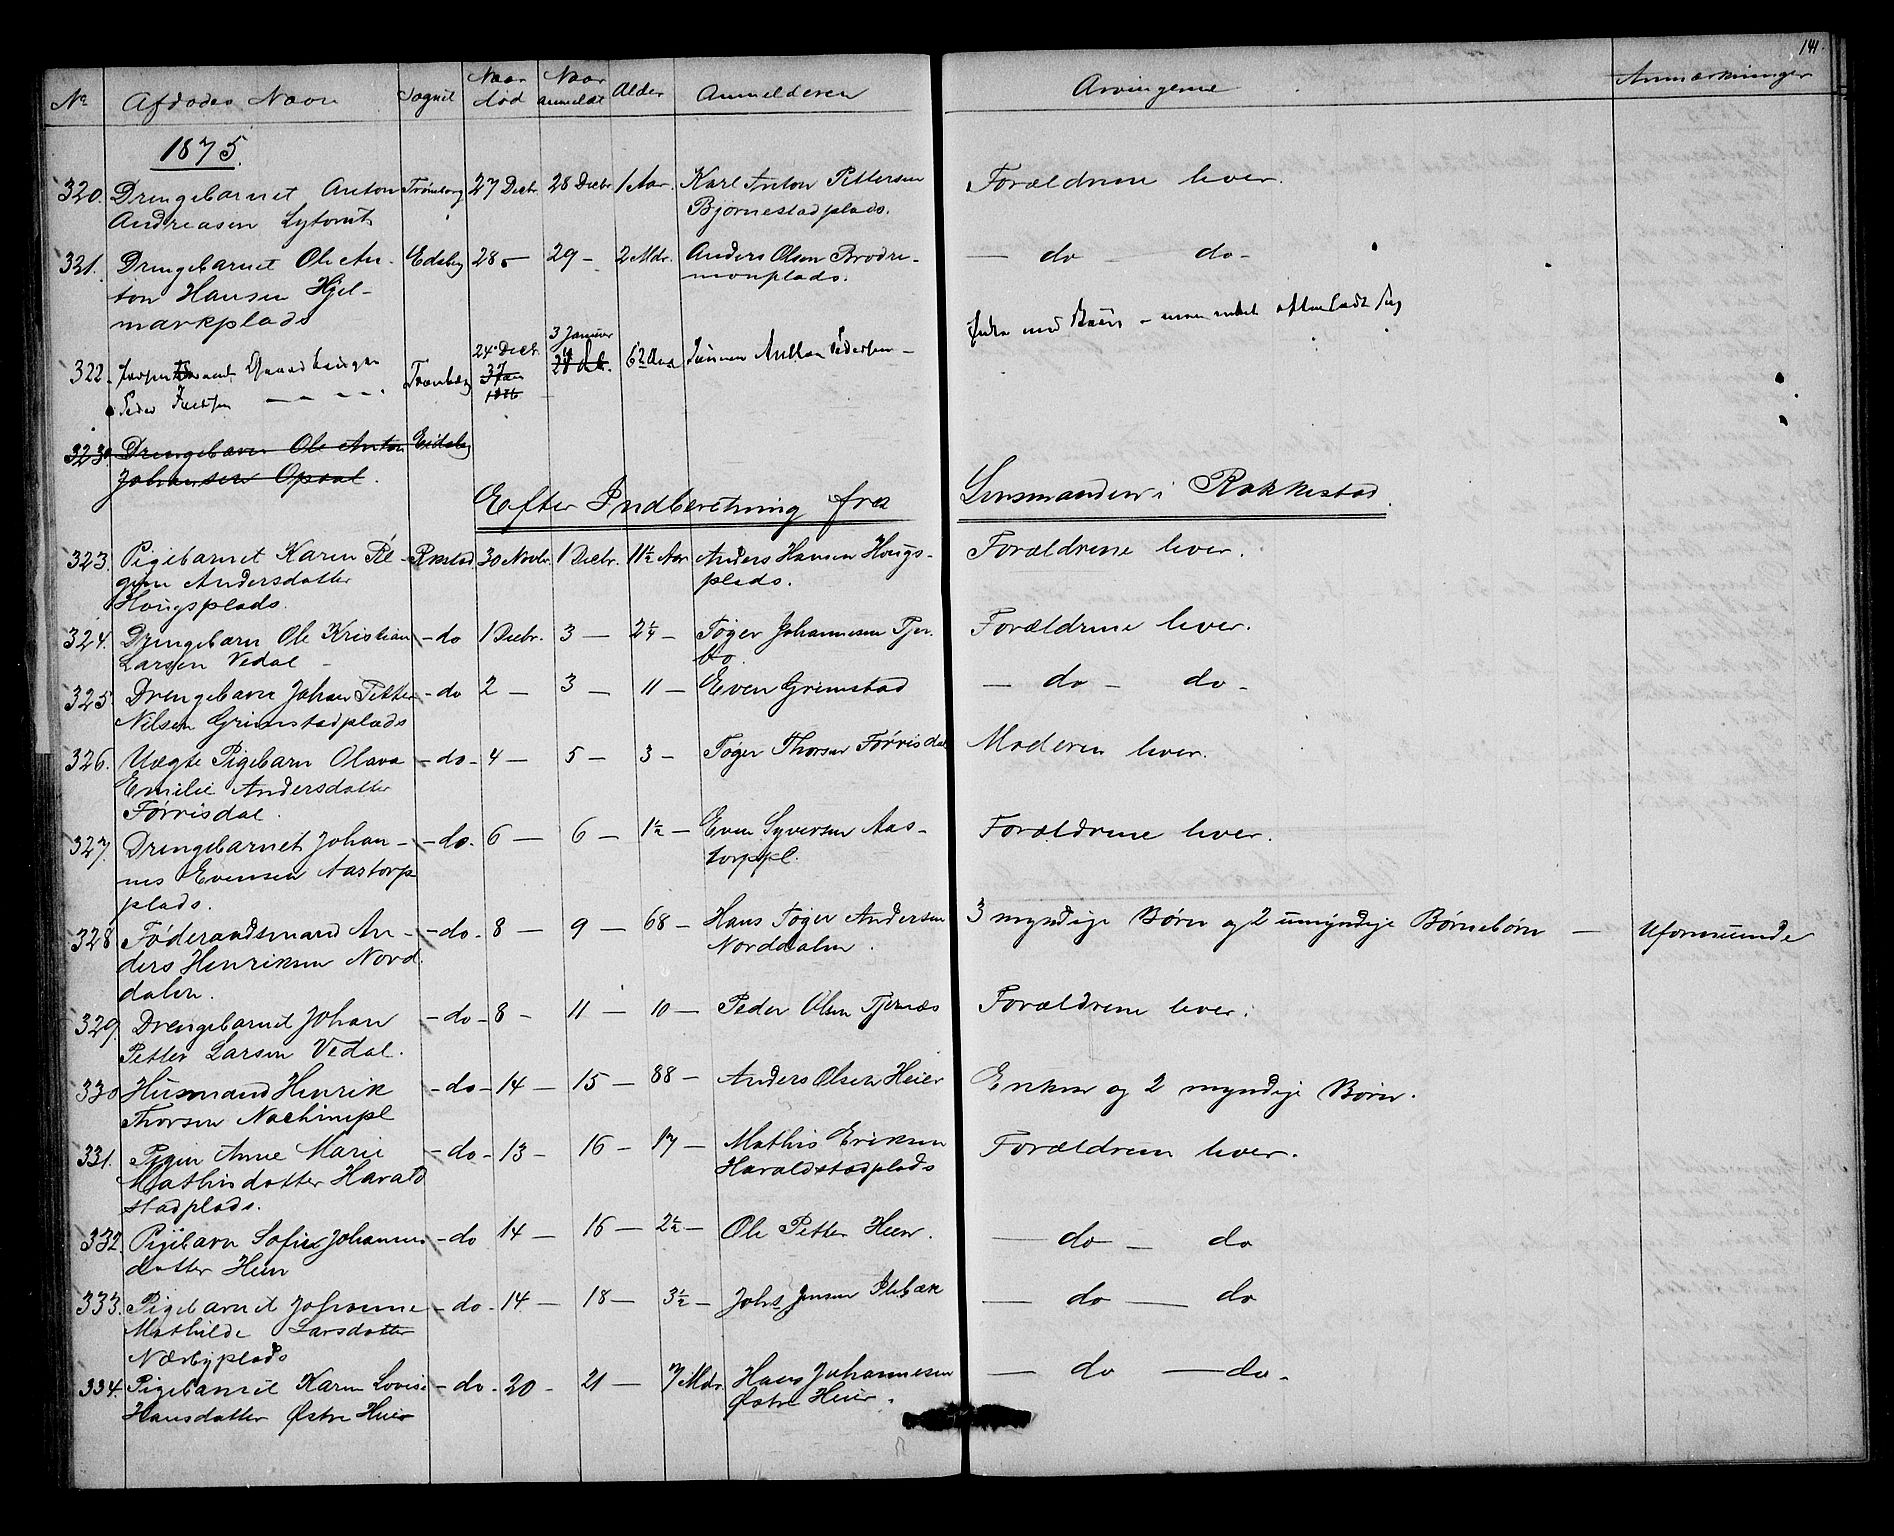 141.
No Afdødes Navn Sognet Naar død Naar anmeldt Alder Anmelderen Arvingerne Anmærkninger
1875.
320. Drengebarnet Anton Trømborg 27 Decbr. 28 Decbr. 1 Aar. Karl Anton Pettersen Forældrene lever.
Andreasen Bjørnestadplads.
321. Drengebarnet Ole An- Edsberg 28 - 29 - 2 Mdr. Anders Olsen Brødre- - do - do -
ton Hansen Hjel- monplads.
markplads
322. Trømborg 24 Decbr. 3 Januar 62 Anton Pedersen -
Peder
323. Drengebarn Ole Anton Eidsberg
Johansen Opsal.
Efter Indberetning fra Lensmanden i Rakkestad.
323. Pigebarnet Karen El- Rkstad 30 Novbr. 1 Decbr. 1½ Aar Anders Hansen Hougs- Forældrene lever.
gine Andersdatter plads.
Hougsplads.
324. Drengebarn Ole Kristian - do 1 Decbr. 3 - 2¼ - Tøger Johannesen Tjer- Forældrene lever.
Larsen Vedal - bo.
325. Drengebarn Johan Petter - do 2 - 3 - 11 - Even Grimstad - do - do -
Nilsen Grimstadplads
326. Uægte Pigebarn Olava - do - 4 - 5 - 3 - Tøger Thorsen Førrisdal Moderen lever.
Emilie Andersdatter
Førrisdal.
327. Drengebarnet Johan- - do. 6 - 6 - 1½ - Even Syversen Aas- Forældrene lever.
nes Evensen Aastorp torppl.
plads.
328 Føderaadsmand An- - do - 8 - 9 - 68 - Hans Tøger Andersen 3 myndige Børn og 2 umyndige Børnebørn - Uformuende
ders Henriksen Nord- Norddalen.
dalen.
329. Drengebarnet Johan - do - 8 - 11 - 10 - Peder Olsen Tjernæs Forældrene lever.
Petter Larsen Vedal.
330 Husmand Henrik - do - 14 - 15 - 88 - Anders Olsen Heier Enken og 2 myndige Børn.
Thorsen
331. Pigen Anne Marie - do - 13 - 16 - 17 - Mathis Eriksen Forældrene lever.
Mathisdatter Harald Haraldstadplads
stadplads.
332. Pigebarn Sofie Johannes - do 14 - 16 - 2½ - Ole Petter Heier. - do - do
datter Heier
333. Pigebarnet Johanne - do - 14 - 18 - 3½ - Johs Jensen - do - do
Mathilde Larsdatter
Nærbyplads
334. Pigebarnet Karen Lovise - do - 20 - 21 - 7 Mdr. Hans Johannesen - do - do -
Hansdatter Østre Heier Østre Heier.